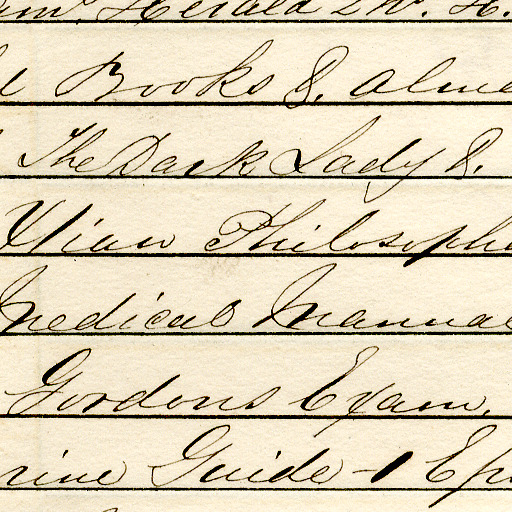 Herald
Books &
The Dark Lady &
Xtian Philosophe
Medical Manual
Gordons Exam.
rine Guide - 1 Ep